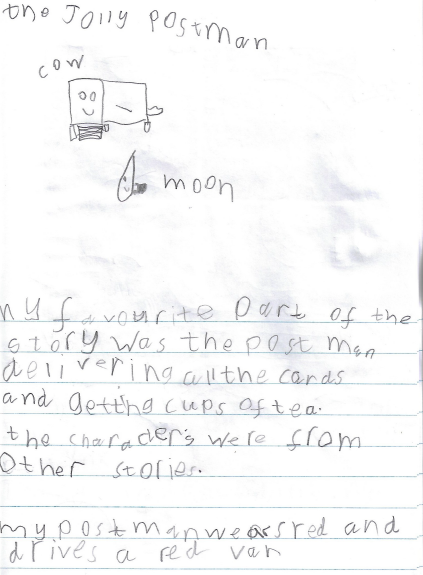 the Jolly Postman
cow
moon
my favourite part of the
story was the post man
delivering all the cards
and getting cups of tea.
the characters were from
Other stories.
my postman wears red and
drives a red van